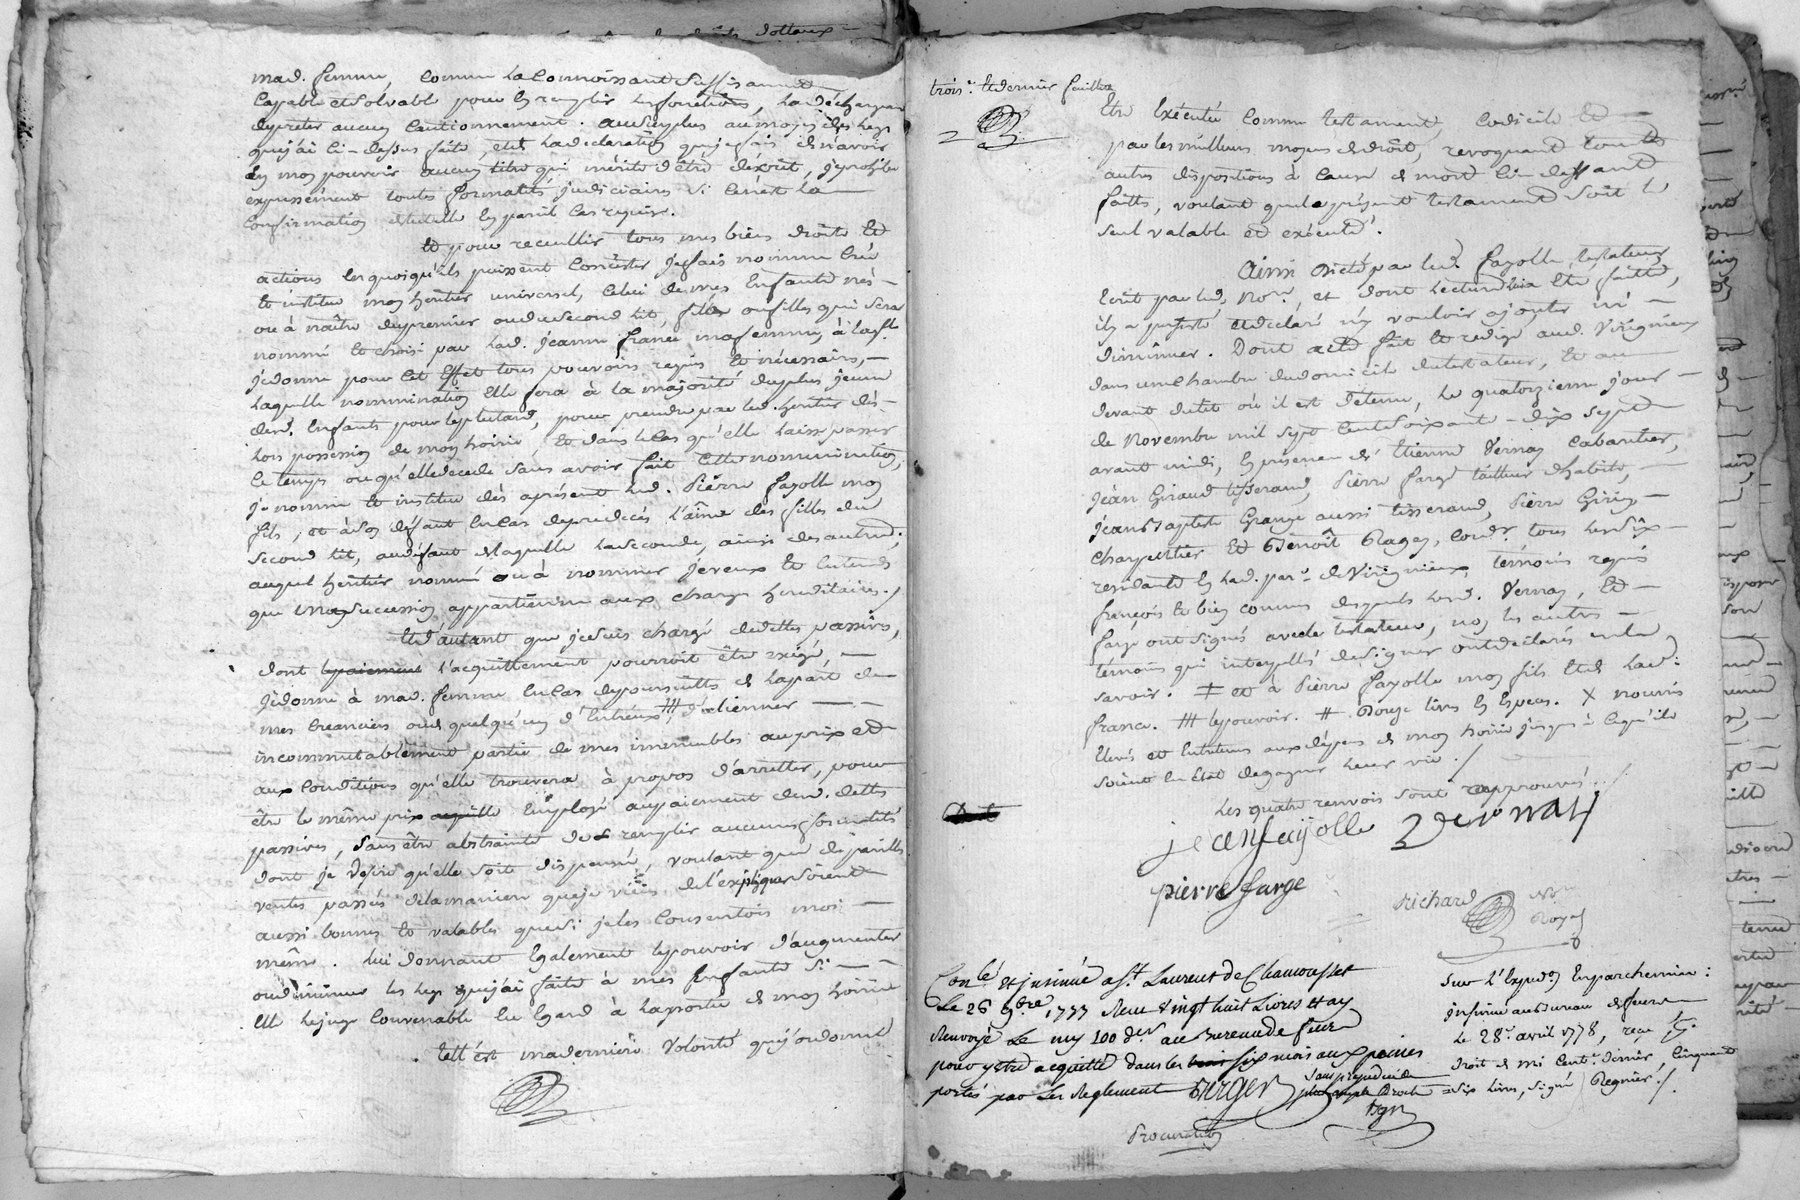 mad. femme, comme la connoissant suffisamment
capable et solvable pour en remplir les fonctions, la décharge
de preter aucun cautionnement. au surplus au moyen des legs
que j'ai ci-dessus faits, et la declaration que je fais de n'avoir
en mon pouvoir aucun titre qui mérite d'être décrit, je prohibe
expressément toutes formalités judiciaires si ce n'est la
confirmation de tutelle en pareil cas requise.
Et pour recueillir tous mes biens droits et
actions en quoi qu'ils puissent consister je fais nomme crée
et institue mon heritier universel, celui de mes Enfants nés
ou à naitre du premier ou du second lit, fils ou filles qui sera
nommé et choisi par lad. jeanne france ma femme, à laqlle
je donne pour cet Effet tous pouvoirs requis et nécessaires,
laquelle nommination elle fera à la majorité du plus jeune
desd. Enfants pour le plutard, pour prendre par led. heritier dès-
lors possession de mon hoirie et dans le cas qu'elle laisse passer
le temps ou qu'elle decede sans avoir fait cette nommination,
je nomme et institue dès aprésent led. Pierre fayolle mon
fils, et à son deffaut en cas de predecès l'ainée des filles du
second lit, au defaut de laquelle la seconde, ainsi des autres;
auquel heritier nommé ou à nommer je veux et entends
que ma succession appartienne aux charges hereditaires./
Et d'autant que je suis chargé de dettes passives,
dont le paiement l'acquittement pourroit être exigé,
je donne à mad. femme en cas de poursuittes de la part de
mes creanciers ou de quelqu'un d'entreux # d'alienner
incommutablement partie de mes immeubles au prix et
aux conditions qu'elle trouvera à propos d'arretter, pour
être le même prix employé au paiement desd. dettes
passives, sans être abstrainte de remplir aucunes formalités
dont je désire qu'elle soit dispensée, voulant que de pareilles
ventes passées de la maniere que je viens de l'expliquer soient
aussi bonnes et valables que si je les consentois moi
même. lui donnant Egalement le pouvoir d'augmenter
ou diminuer les legs que j'ai faits à mes Enfants si
elle le juge convenable eu Egard à la portée de mon hoirie
telle est ma derniere volonté que j'ordonne
trois.e Et dernier feuillet
Etre Exécutée comme testament, codicile et
par les meilleurs moyens de droit, revoquant toutes
autres dispositions à cause de mort ci-devant
faittes, voulant que le présent testament soit le
seul valable et exécuté.
Ainsi dicté par led. fayolle testateur
Ecrit par led. No.re, et dont lecture lui a Eté faitte,
il a persisté et declaré n'y vouloir ajouter ni
diminuer. Dont acte fait et redigé aud. Virigneux
dans une chambre du domicile du testateur, et au
devant du lit où il est détenu, le quatorzieme jour
de Novembre mil sept cent soixant-dix sept
avant midi, en présence d'Etienne Vernay cabaretier,
Jean Giraud tisserand, Pierre farge tailleur d'habits,
jean baptiste Grange aussi tisserand, Pierre Giri
charpentier et Benoît Ragey, cord.r tous les six
residants en lad. par.e de Virigneux, temoins requis
françois et bien connus desquels led. Vernay, et
farge ont signés avec le testateur, non les autres
témoins qui interpellés de signer ont declarés ne le
savoir. ‡ et à Pierre fayolle mon fils et de lad.
france. # le pouvoir. # Douze livres en Especes. X nourris
elevés et Entretenus aux dépens de mon hoirie jusques à ce qu'ils
soient en Etat de gagner leur vie./
Les quatre renvois sont approuvés./
jean fayolle
Vernay
pierre farge
Richard No.re Royal
Con.lé et insinué a S.t Laurent de Chamousset
Le 26 9.bre 1777 Reçu vingt huit Livres et ay
Renvoyé Le my 100 d.er au Bureau de feurs
pour y etre acquitté dans les six mois aux peines
portés par les Reglement Berger
sans prejudice de
plus ample Droit
Bgr
Procuration
Sur l'Exped.on En parchemin:
insinué au bureau de feurs
Le 28.e avril 1778, reçu p.r
droit de mi cent.e denier, cinquante
-six livres, signé Regnier./.